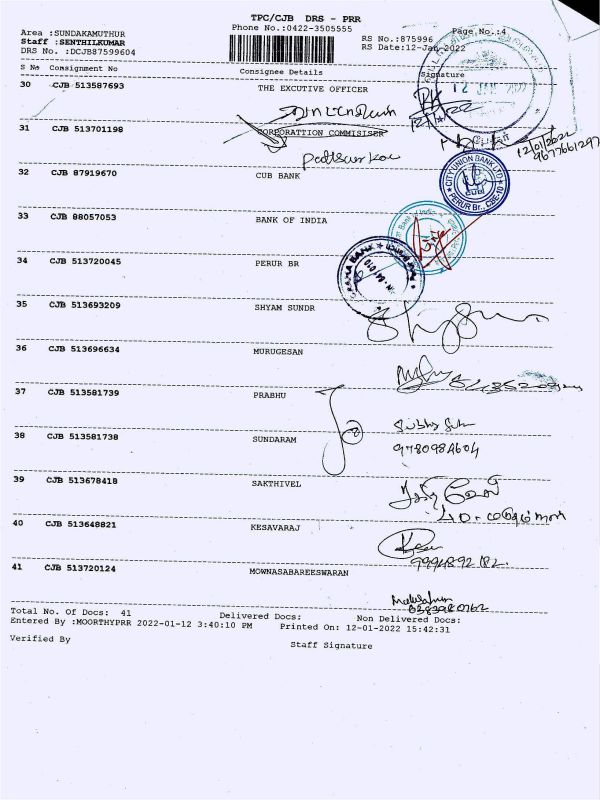 TPC/CJB DRS - PRR
Phone No.:0422-3505555
Page No.:4
Area :SUNDAKAMUTHUR
Staff :SENTHILKUMAR
DRS No.:DCJB87599604
RS No.:875996
RS Date:12-Jan-2022
S No Consignment No Consignee Details Signature
30 CJB 513587693 THE EXCUTIVE OFFICER
31 CJB 513701198 CORPORATTION COMMISISER
12/01/2022
9677661297
32 CJB 87919670 CUB BANK
CITY UNION BANK LTD.
CUB
PERUR Br., CBE-10
33 CJB 88057053 BANK OF INDIA
34 CJB 513720045 PERUR BR
35 CJB 513693209 SHYAM SUNDR
36 CJB 513696634 MURUGESAN
37 CJB 513581739 PRABHU
38 CJB 513581738 SUNDARAM
9780984604
39 CJB 513678418 SAKTHIVEL
40 CJB 513648821 KESAVARAJ
9994892182
41 CJB 513720124 MOWNASABAREESWARAN
Total No. Of Docs: 41 Delivered Docs: Non Delivered Docs:
Entered By :MOORTHYPRR 2022-01-12 3:40:10 PM Printed On: 12-01-2022 15:42:31
Verified By Staff Signature